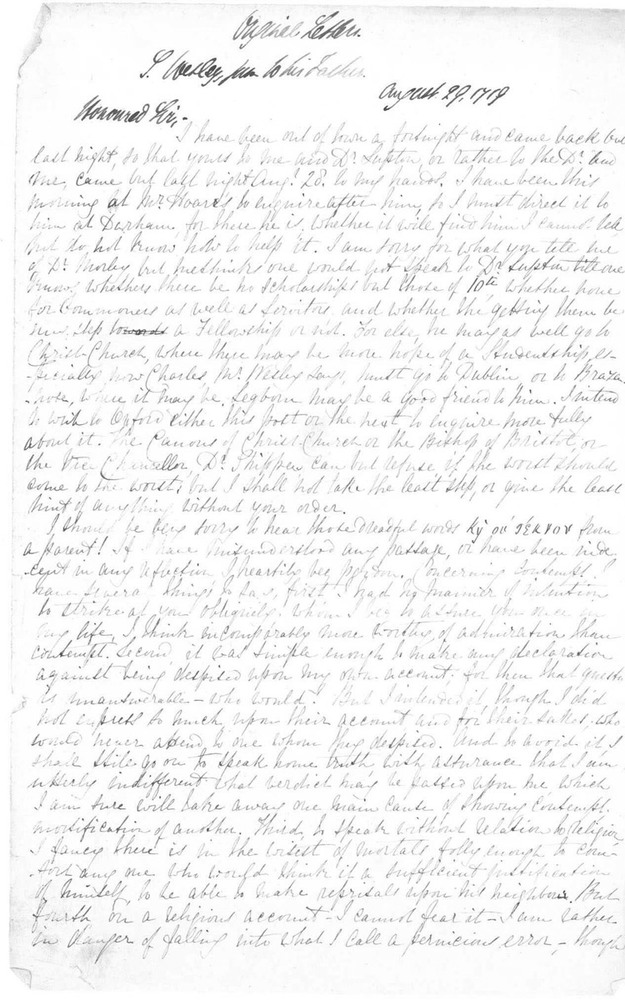 Original Letter.
S. Wesley, jun to his Father.
August 29, 1719
Honoured Sir,-
I have been out of town a fortnight and came back but
last night, so that yours to me and Dr. Lupton, or rather to the Dr. and
me, came but last night Aug! 28. to my hands. I have been this
morning at Mr. Hoare's to enquire after him, so I must direct it to
him at Durham, for there he is, whether it will find him I cannot tell
but do not know how to help it. I am sorry for what you tell me
of Dr. Morley, but methinks one would not speak to Dr Lupton till one
knows whether there be no scholarships but those of 10te whether none
for Commoners as well as Servitors and whether the getting them be
new step towards a Fellowship or not. For else, he may as well go to
Christ Church, where there may be more hope of a Studentship, es-
pecially now Charles Mr. Wesley says, must go to Dublin or to Braza-
nose, where it may be, Legborn may be a good friend to him. I intend
to write to Oxford either this post or the next to enquire more fully
about it. The Canons of Christ Church or the Bishop of Bristol, or
the Vice Chancellor Dr. Shippen can but refuse if the worst should
come to the worst; but I shall not take the least step, or give the least
hint of anything without your order.
I should be very sorry to hear those dreadful words from
a parent! If I have misunderstood any passage, or have been inde-
cent in any I heartily beg pardon. Concerning contempt I
have several things to say, first I had no manner of intention
to strike at you obliquely, whom I beg to assure you once in
my life, I think incomparably more worthy of admiration than
contempt. Second, it was simple enough to make my declaration
against being despised upon my own account: for then that question
is unanswerable - who would? But I intended it though I did
not express so much upon their account and for their sakes, who
would never attend to one whom they despised. And to avoid it I
shall still go on to speak home truth with assurance that I am
utterly indifferent what verdict may be passed upon me which
I am sure will take away one main cause of showing contempt,
mortification of another. Third, to speak without relation to religion,
I fancy there is in the wisest of mortals folly enough, to com-
fort any one who would think it a sufficient justification
of himself, to be able to make reprisals upon his neighbour. But
fourth on a religious account - I cannot fear it - I am rather
in danger of falling into what I call a pernicious error, - though